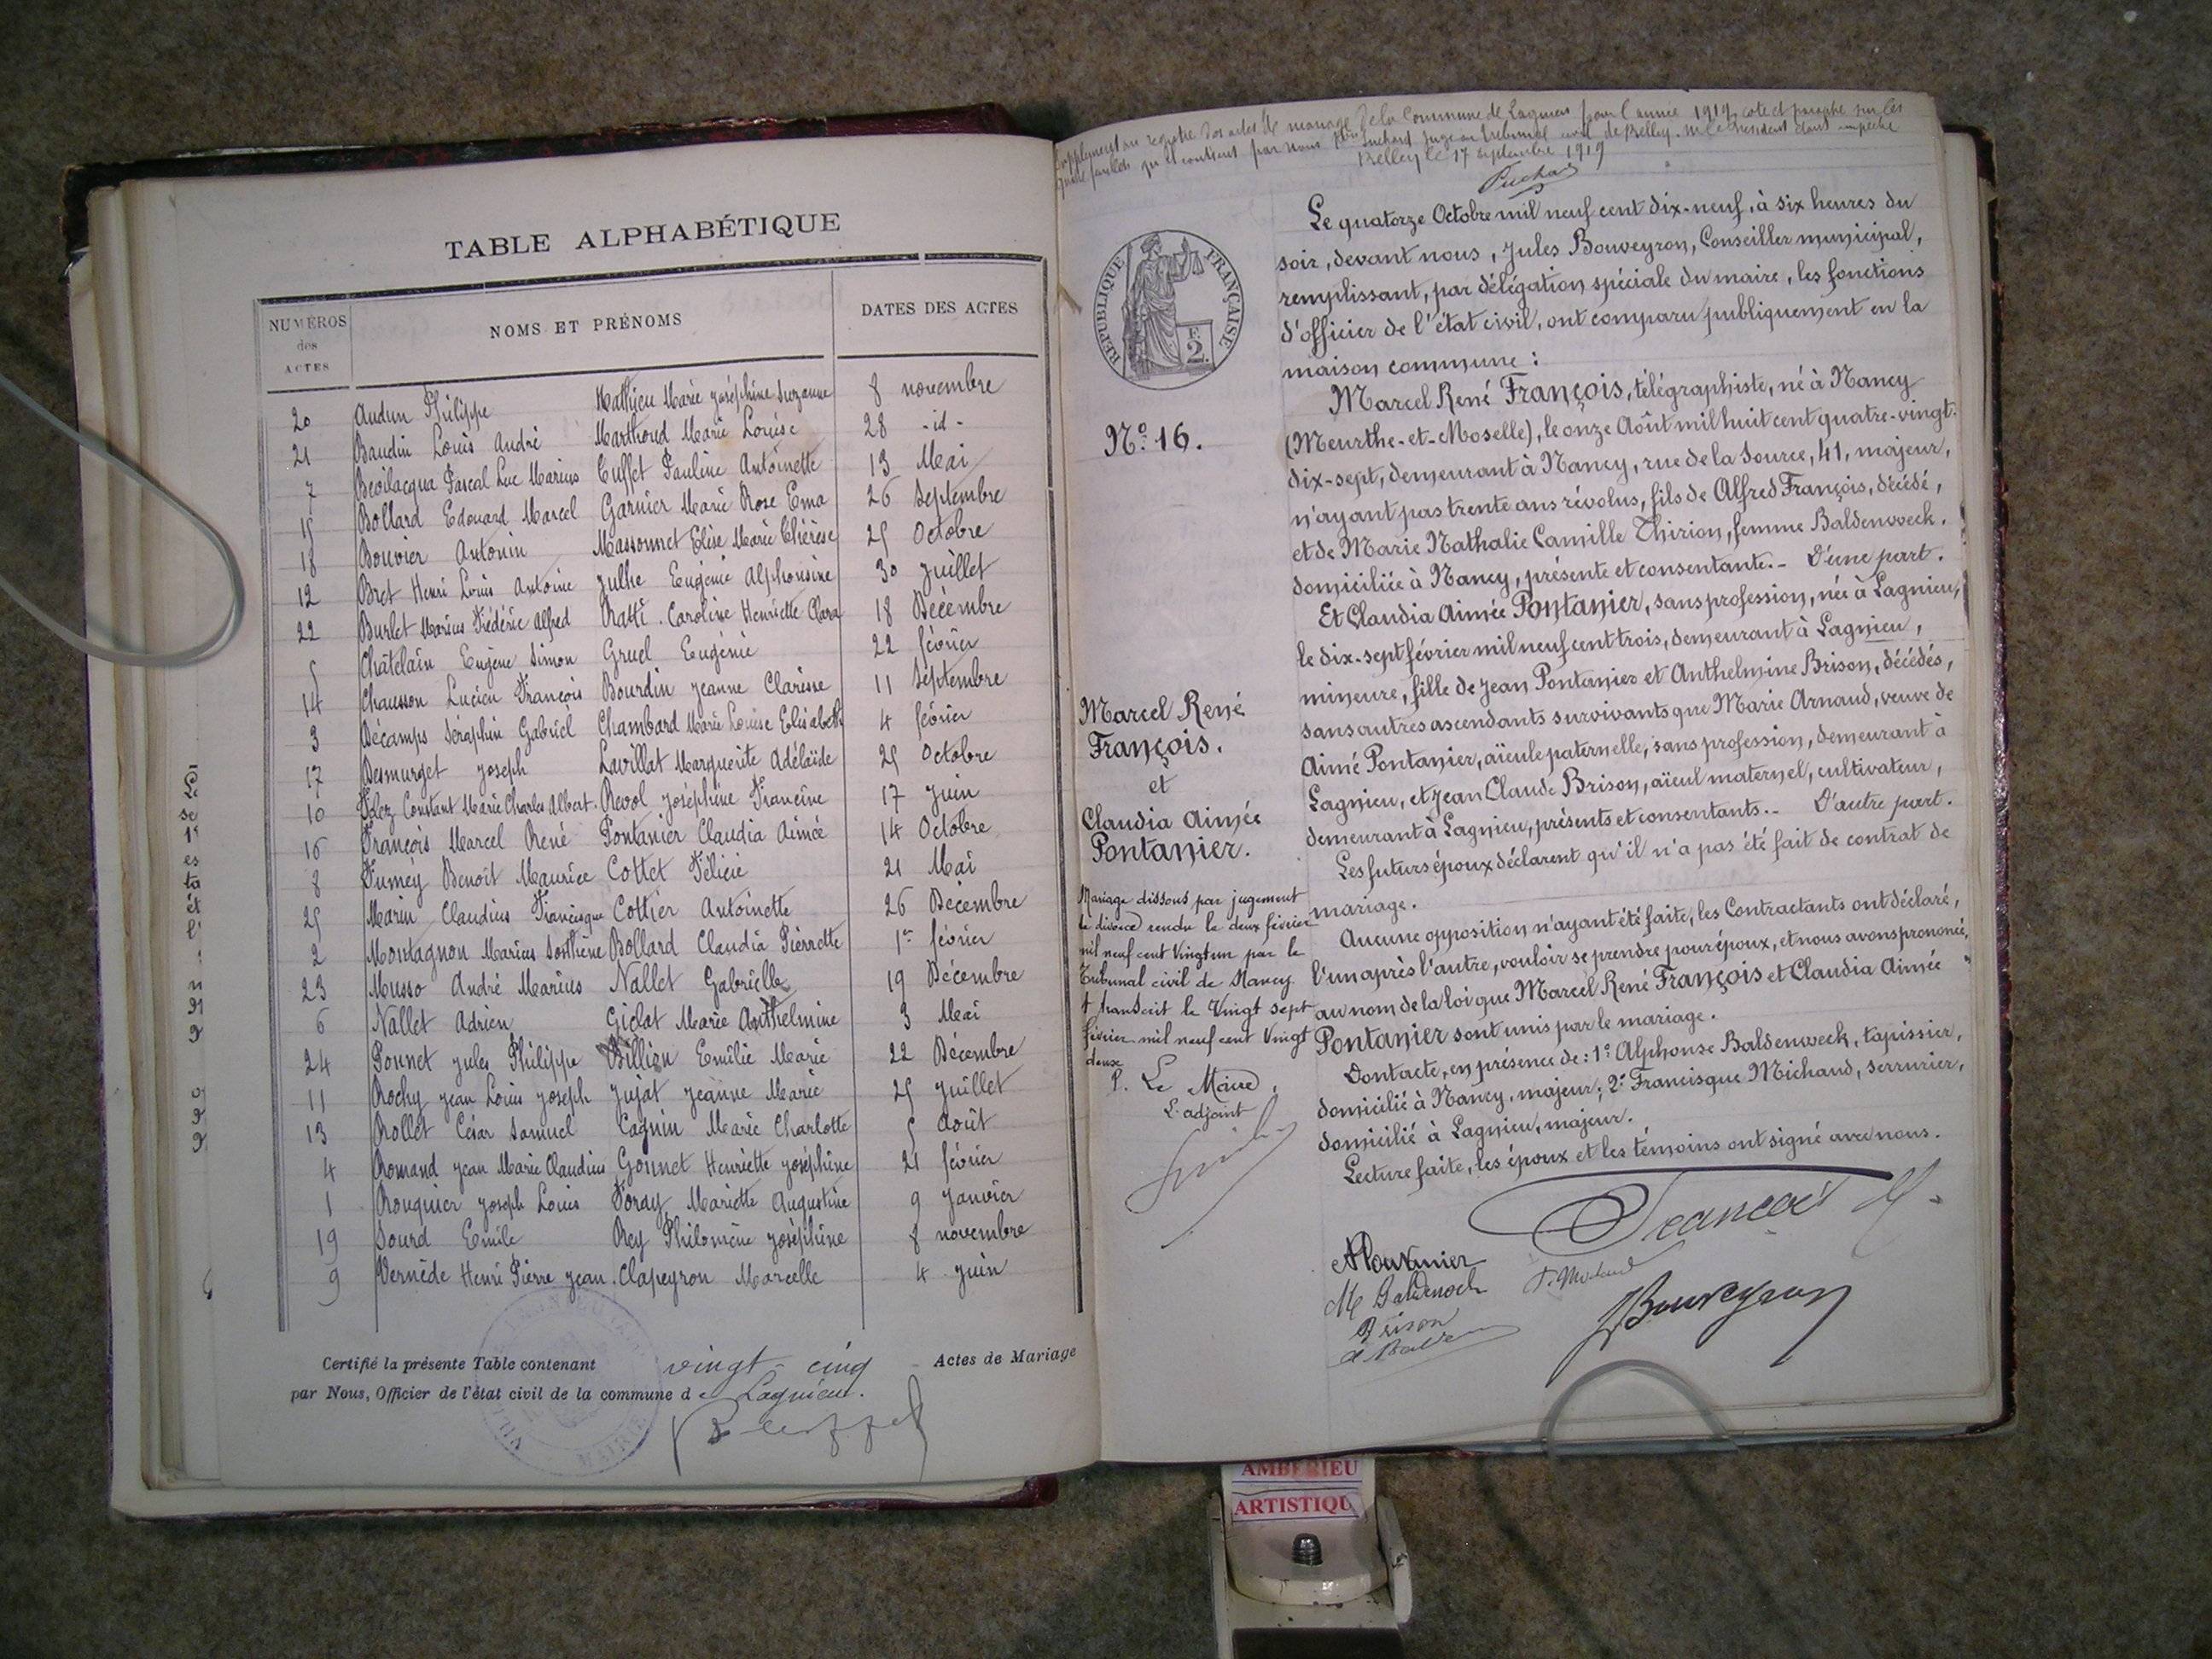 TABLE ALPHABÉTIQUE
NUMÉROS des ACTES
NOMS ET PRÉNOMS
DATES DES ACTES
20 Audun Philippe Mathieu Marie Joséphine Suzanne 8 novembre
21 Baudin Louis André Marthoud Marie Louise 28 -id-
7 Bevilacqua Pascal Luc Marius Cuffet Pauline Antoinette 13 Mai
15 Bollard Edouard Marcel Garnier Marie Rose Ema 26 Septembre
18 Bouvier Antonin Massonnet Elise Marie Thérèse 25 Octobre
12 Bret Henri Louis Antoine Julhe Eugénie Alphonsine 30 Juillet
22 Burlet Marius Frédéric Alfred Ratti Caroline Henriette Clara 18 Décembre
5 Châtelain Eugène Simon Gruel Eugénie 22 février
14 Chausson Lucien François Bourdin Jeanne Clarisse 11 Septembre
3 Décamps Séraphin Gabriel Chambard Marie Louise Elisabeth 4 février
17 Desmurget Joseph Lavillat Marguerite Adélaïde 25 Octobre
10 Constant Marie Charles Albert Revol Joséphine Francine 17 Juin
16 François Marcel René Pontanier Claudia Aimée 14 Octobre
8 Fumey Benoit Maurice Cottet Félicie 21 Mai
25 Marin Claudius Francisque Cottier Antoinette 26 Décembre
2 Montagnon Marius Sosthène Bollard Claudia Pierrette 1er février
23 Musso André Marius Nallet Gabrielle 19 Décembre
6 Nallet Adrien Giclat Marie Anthelmine 3 Mai
24 Ponnet Jules Philippe Billion Emilie Marie 22 Décembre
11 Rochy Jean Louis Joseph Jujat Jeanne Marie 25 Juillet
13 Rollet César Samuel Cagnin Marie Charlotte 5 Août
4 Romand Jean Marie Claudius Gonnet Henriette Joséphine 21 février
1 Rouquier Joseph Louis Foray Mariette Augustine 9 Janvier
19 Sourd Emile Rey Philomène Joséphine 8 novembre
9 Vernède Henri Pierre Jean Clapeyron Marcelle 4 Juin
Certifié la présente Table contenant vingt-cinq Actes de Mariage
par Nous, Officier de l'état civil de la commune de Lagnieu.
MAIRIE
Supplément au registre des actes de mariage de la Commune de Lagnieu pour l'année 1919 coté et paraphé sur les
feuillets qu'il contient par nous Juge au tribunal civil de Belley. M. le Président étant empêché
Belley le 17 septembre 1919
RÉPUBLIQUE FRANÇAISE
F. 2.
Le quatorze Octobre mil neuf cent dix-neuf, à six heures du
soir, devant nous, Jules Bouveyron, Conseiller municipal,
remplissant, par délégation spéciale du maire, les fonctions
d'officier de l'état civil, ont comparu publiquement en la
maison commune :
N° 16.
Marcel René François, télégraphiste, né à Nancy
(Meurthe-et-Moselle), le onze Août mil huit cent quatre-vingt-
dix-sept, demeurant à Nancy, rue de la Source, 41, majeur,
n'ayant pas trente ans révolus, fils de Alfred François, décédé,
et de Marie Nathalie Camille Thirion, femme Baldenweck,
domiciliée à Nancy, présente et consentante.- D'une part.
Et Claudia Aimée Pontanier, sans profession, née à Lagnieu,
le dix-sept février mil neuf cent trois, demeurant à Lagnieu,
mineure, fille de Jean Pontanier et Anthelmine Brison, décédés,
sans autres ascendants survivants que Marie Arnaud, veuve de
Aimé Pontanier, aïeule paternelle, sans profession, demeurant à
Lagnieu, et Jean Claude Brison, aïeul maternel, cultivateur,
demeurant à Lagnieu, présents et consentants.- D'autre part.
Les futurs époux déclarent qu'il n'a pas été fait de contrat de
mariage.
Aucune opposition n'ayant été faite, les Contractants ont déclaré,
l'un après l'autre, vouloir se prendre pour époux, et nous avons prononcé,
au nom de la loi que Marcel René François et Claudia Aimée
Pontanier sont unis par le mariage.
Dont acte, en présence de : 1° Alphonse Baldenweck, tapissier,
domicilié à Nancy, majeur; 2° Francisque Michaud, serrurier,
domicilié à Lagnieu, majeur.
Lecture faite, les époux et les témoins ont signé avec nous.
Marcel René
François.
et
Claudia Aimée
Pontanier.
Mariage dissous par jugement
de divorce rendu le deux février
mil neuf cent vingt un par le
Tribunal civil de Nancy
et transcrit le vingt sept
février mil neuf cent vingt
deux
P. Le Maire,
L'adjoint
François M
A Pontanier
Brison
F. Michaud
J Bouveyron
AMBERIEU
ARTISTIQU